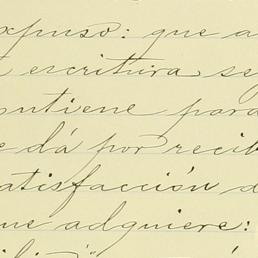 xpuso: que a
escritura se
ntiene para
e dá por recib
atisfacción d
ue adquiere: